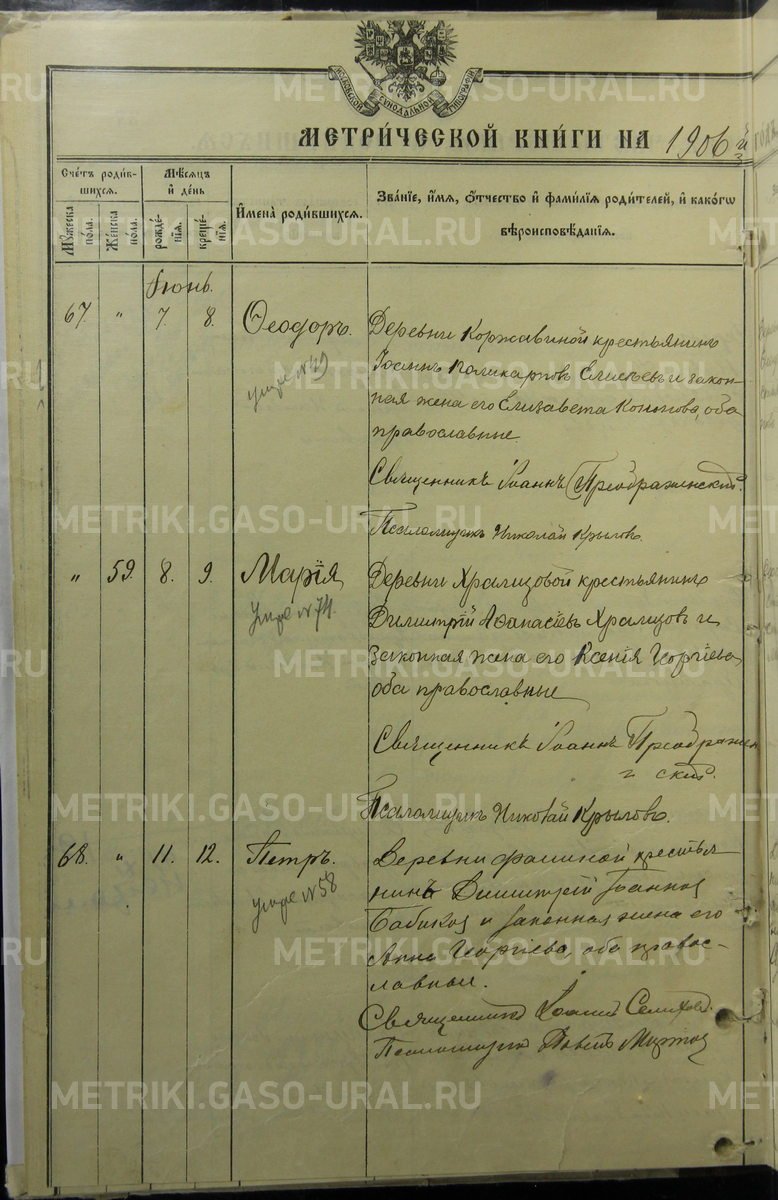 МОСКОВСКОЙ СѴНОДАЛЬНОЙ ТИПОГРАФІИ
МЕТРИ́ЧЕСКОЙ КНИ́ГИ НА 1906 й
Сче́тъ роди́в-
шихсѧ.
Мѣ́сѧцъ
и҆ де́нь
И҆мена̀ роди́вшихсѧ.
Зва́нїе, и҆́мѧ, ѻ҆́тчество и҆ фами́лїѧ роди́телей, и҆ како́гѡ
вѣроисповѣ́данїѧ.
Мꙋ́жеска по́ла.
Же́нска по́ла.
рожде́нїѧ.
креще́нїѧ.
Іюнь.
67. " 7. 8. Ѳеодоръ.
умре №49
Деревни Коржавиной крестьянинъ
Іоаннъ Поликарповъ Елисѣевъ и закон-
ная жена его Елизавета Кононова, оба
православные
Священникъ Іоаннъ Преображенскій.
Псаломщикъ Николай Крыловъ.
" 59. 8. 9. Марія
Умре №74.
Деревни Храмцовой крестьянинъ
Димитрій Аѳанасіевъ Храмцовъ и
законная жена его Ксенія Георгіева,
оба православные
Священникъ Іоаннъ Преображен
скій.
Псаломщикъ Николай Крыловъ.
68. " 11. 12. Петръ.
умре №58
Деревни Фоминой крестья
нинъ Димитрій Іоаннов
Бабиков и законная жена его
Анна Георгіева, оба правос-
лавные.
Священникъ Іоаннъ
Псаломщикъ Павелъ
METRIKI.GASO-URAL.RU